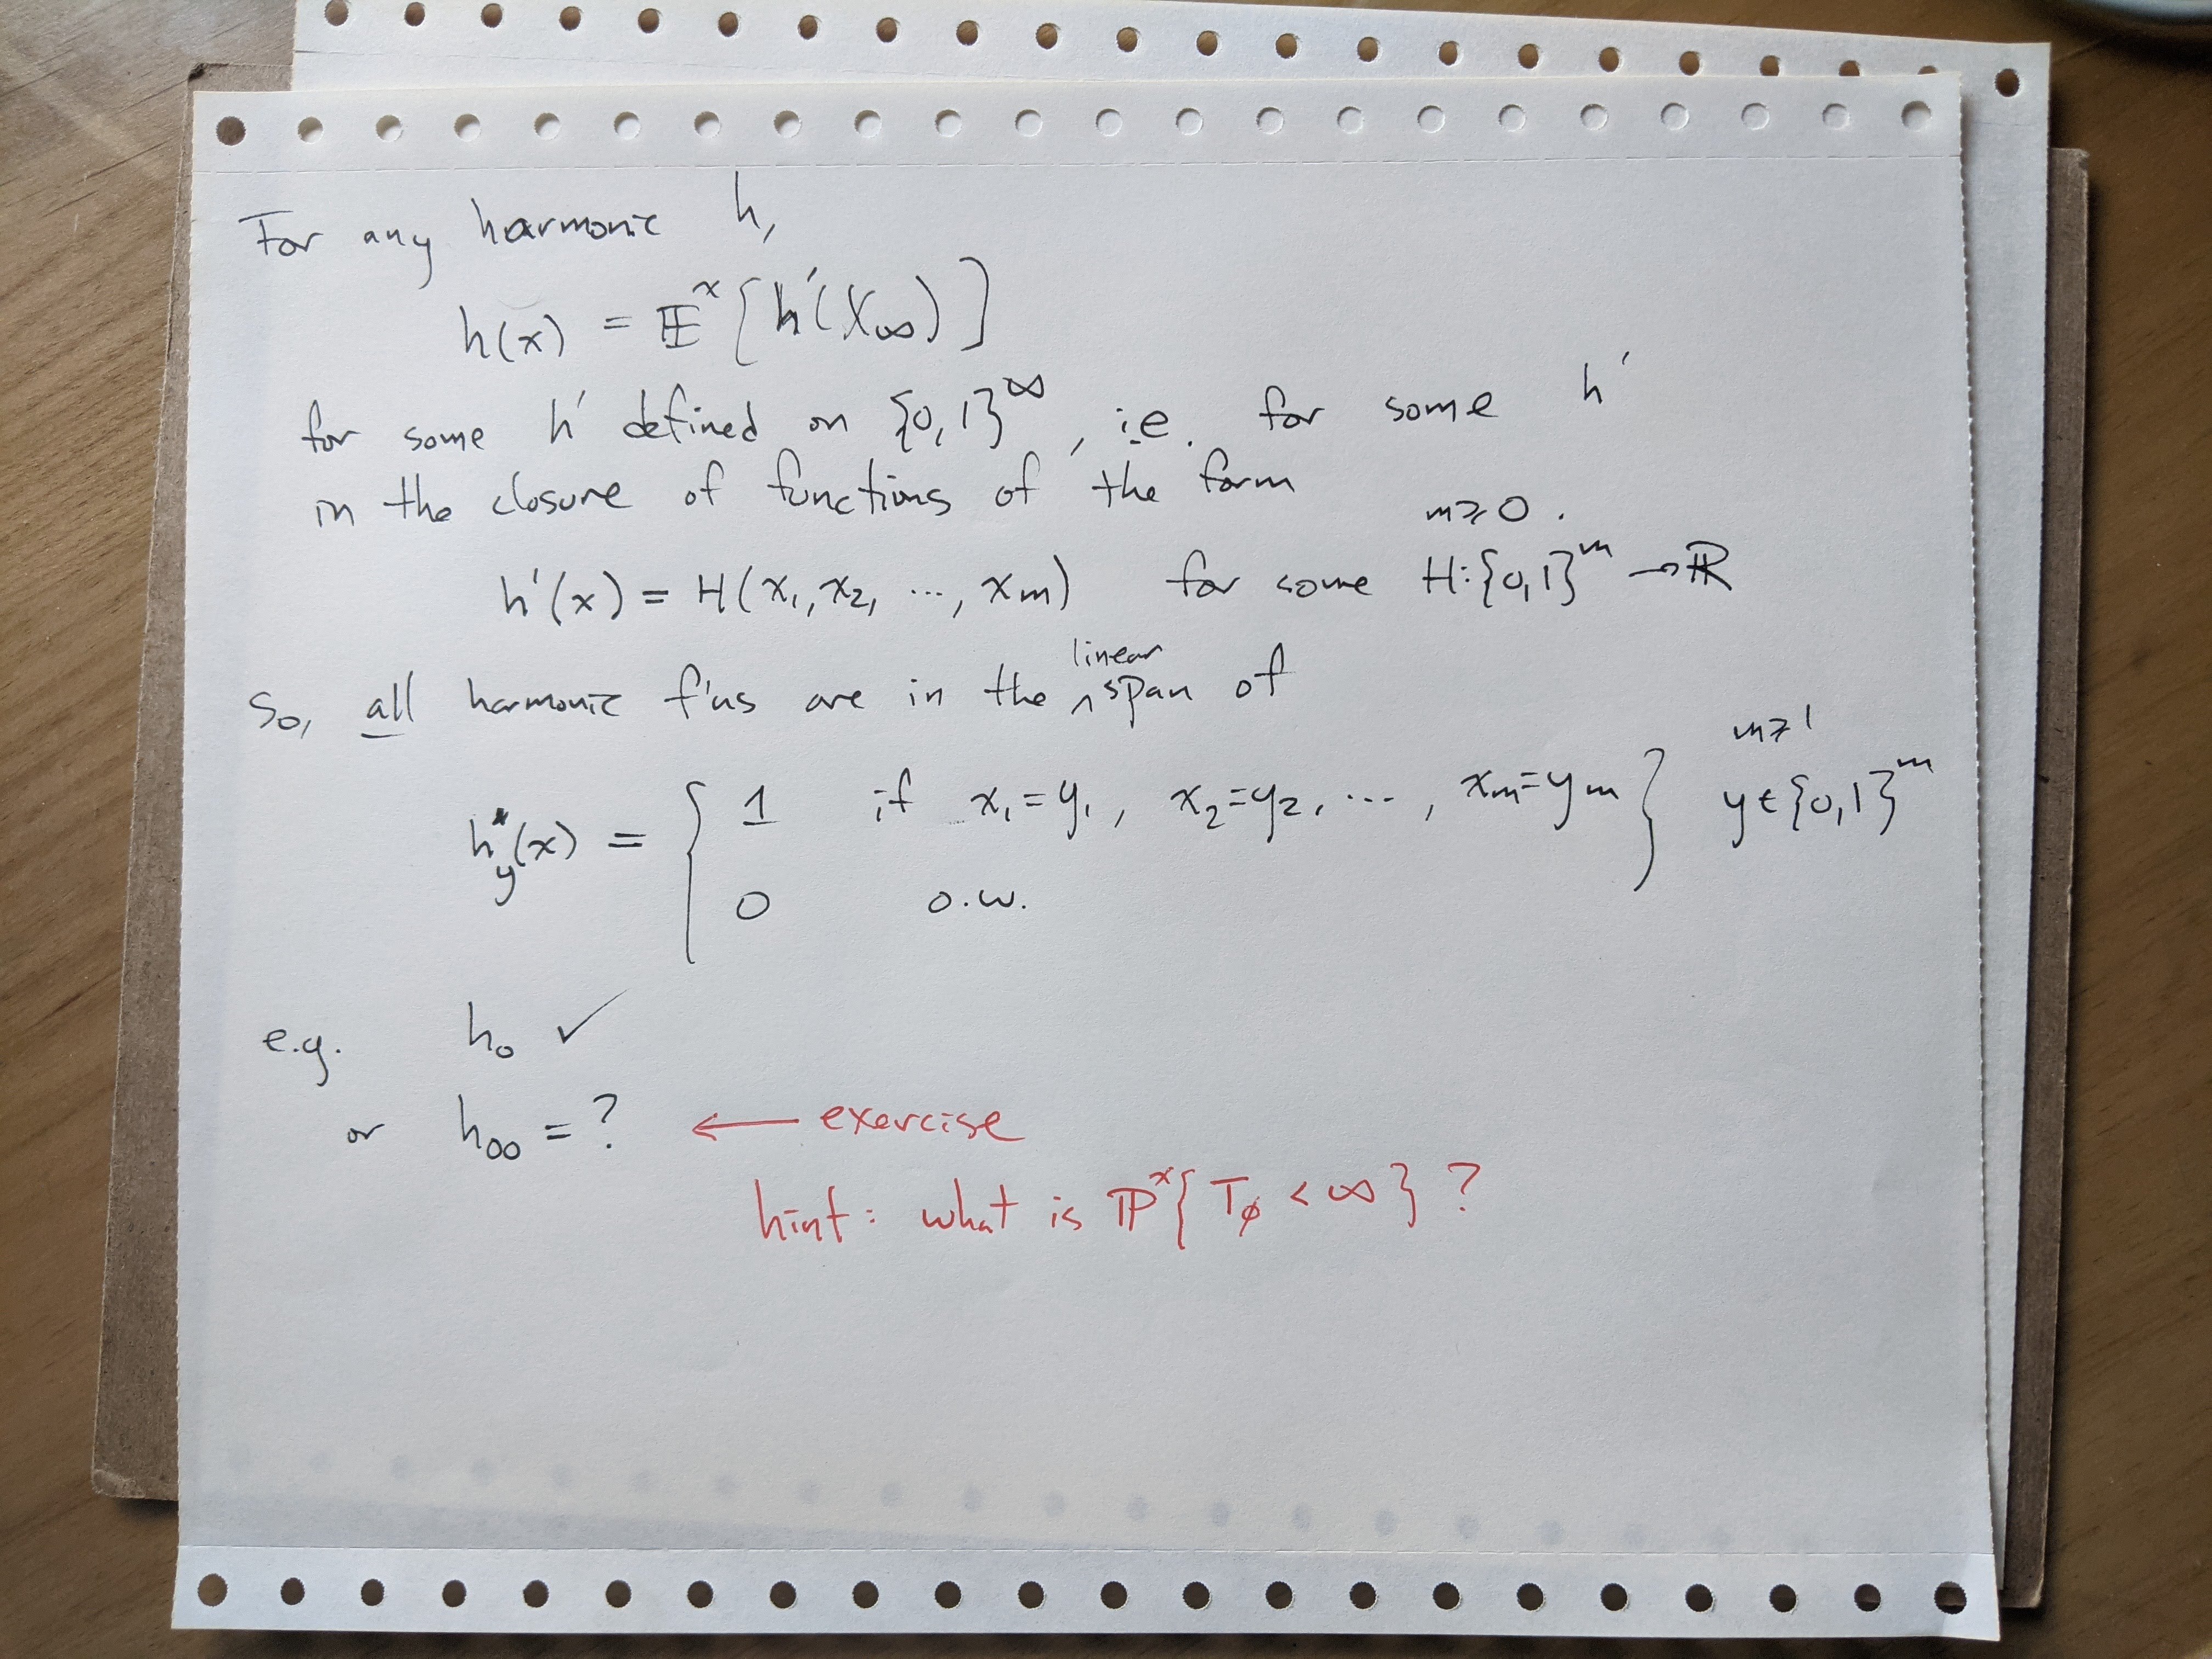 For any harmonic h,
h(x) = 𝔼ˣ[h′(X∞)]
for some h′ defined on {0,1}^∞, i.e. for some h′
in the closure of functions of the form
m≥0.
h′(x) = H(x₁, x₂, ..., xₘ) for some H:{0,1}^m → ℝ
So, all harmonic f'ns are in the ^linear span of
m≥1
h_y(x) = { 1 if x₁=y₁, x₂=y₂, ..., xₘ=yₘ } y∈{0,1}^m
0 o.w.
e.g. h₀ ✓
or h₀₀ = ? ← exercise
hint: what is ℙˣ{T_ø < ∞}?